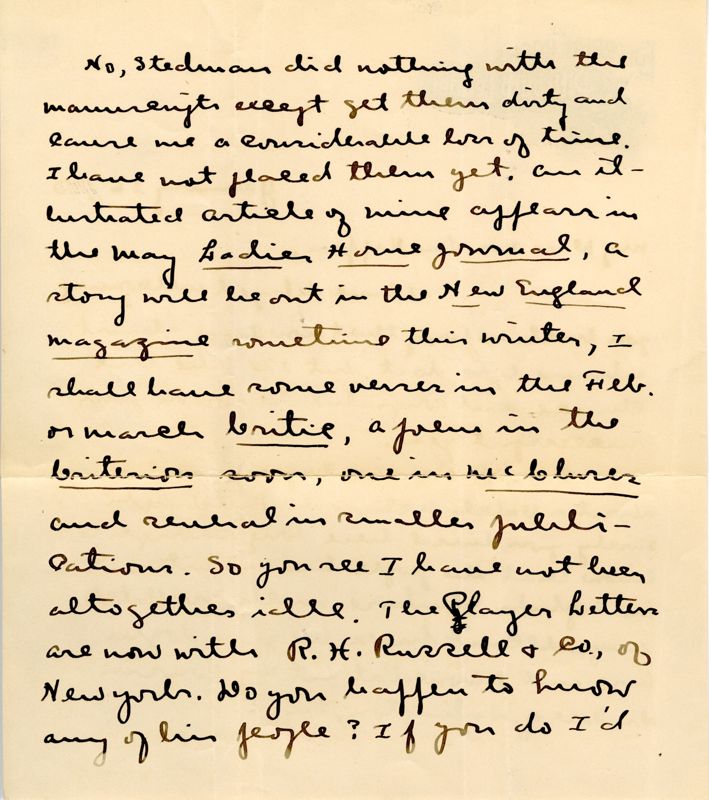 No, Stedman did nothing with the
manuscripts except get them dirty and
cause me a considerable loss of time.
I have not placed them yet. An il-
lustrated article of mine appears in
the May Ladies Home Journal, a
story will be out in the New England
Magazine sometime this winter, I
shall have some verses in the Feb.
or March Critic, a poem in the
Criterion soon, one in McClures
and several in smaller publi-
cations. So you see I have not been
altogether idle. The Player Letters
are now with R. H. Russell & Co., of
New York. Do you happen to know
any of his people? If you do I'd